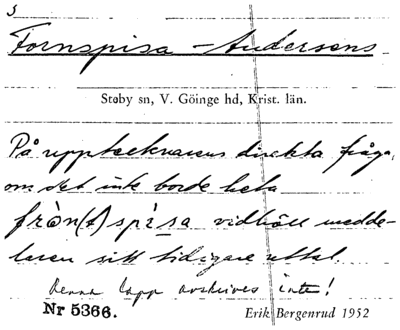 s
Fornspisa - Andersens
Støby sn, V. Göinge hd, Krist. län.
På upptecknarens direkta fråga,
om det inte borde heta
frön(t)spisa vidhöll medde-
laren sitt tidigare uttal.
Denna lapp avskrives inte!
Nr 5366.
Erik Bergenrud 1952